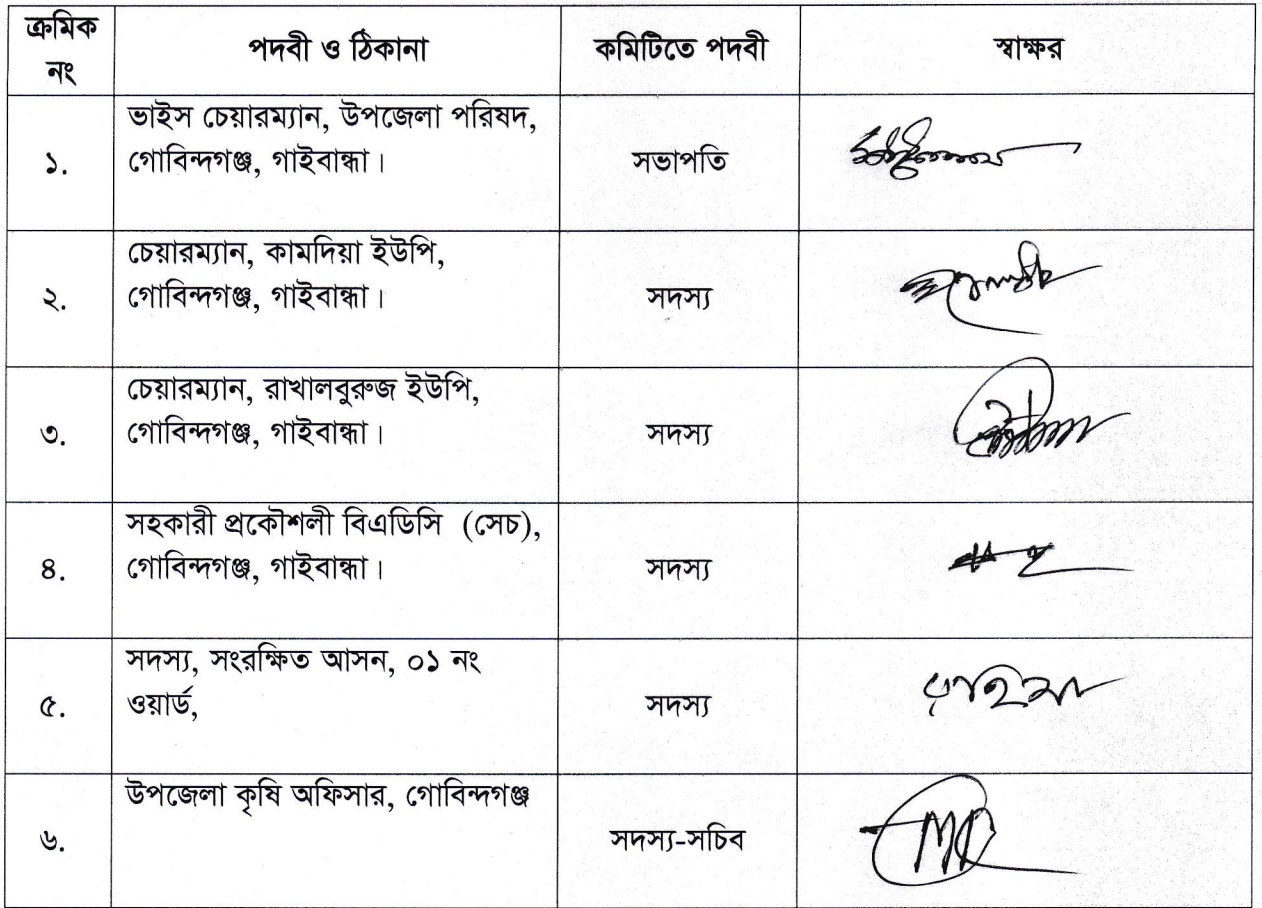 ক্রমিক
নং
পদবী ও ঠিকানা
কমিটিতে পদবী
স্বাক্ষর
১.
ভাইস চেয়ারম্যান, উপজেলা পরিষদ,
গোবিন্দগঞ্জ, গাইবান্ধা।
সভাপতি
২.
চেয়ারম্যান, কামদিয়া ইউপি,
গোবিন্দগঞ্জ, গাইবান্ধা।
সদস্য
৩.
চেয়ারম্যান, রাখালবুরুজ ইউপি,
গোবিন্দগঞ্জ, গাইবান্ধা।
সদস্য
৪.
সহকারী প্রকৌশলী বিএডিসি (সেচ),
গোবিন্দগঞ্জ, গাইবান্ধা।
সদস্য
৫.
সদস্য, সংরক্ষিত আসন, ০১ নং
ওয়ার্ড,
সদস্য
৬.
উপজেলা কৃষি অফিসার, গোবিন্দগঞ্জ
সদস্য-সচিব